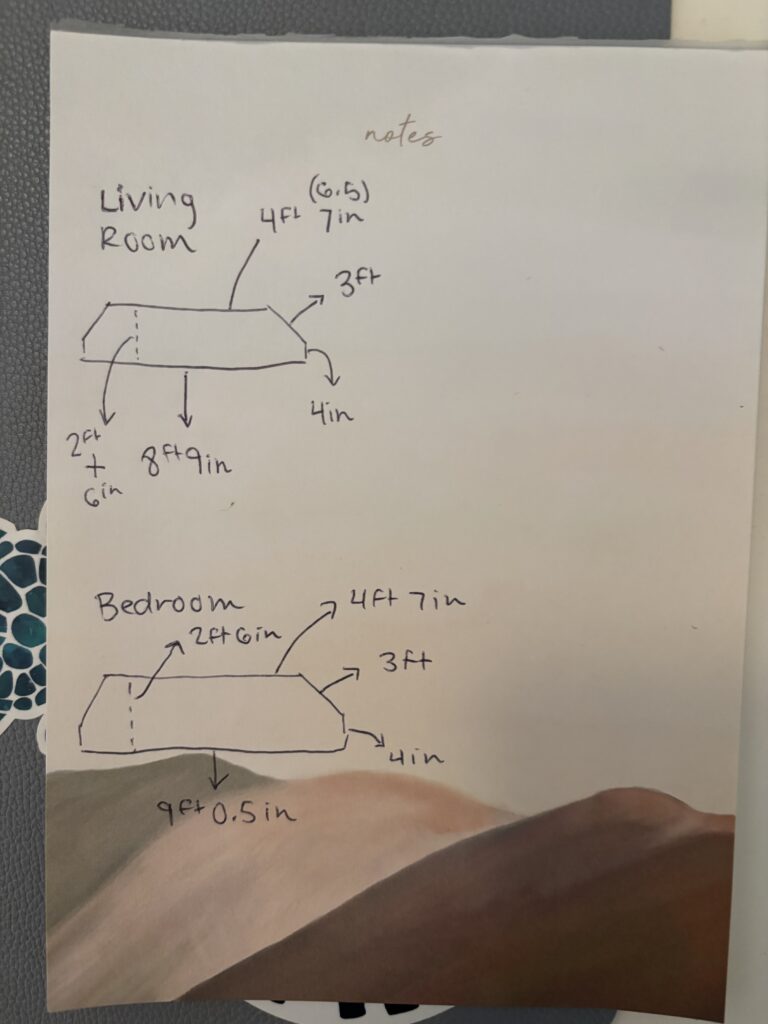 notes
Living
Room
(6.5)
4ft 7in
3ft
4in
2ft
+
6in
8ft 9in
Bedroom
4ft 7in
2ft 6in
3ft
4in
9ft 0.5in